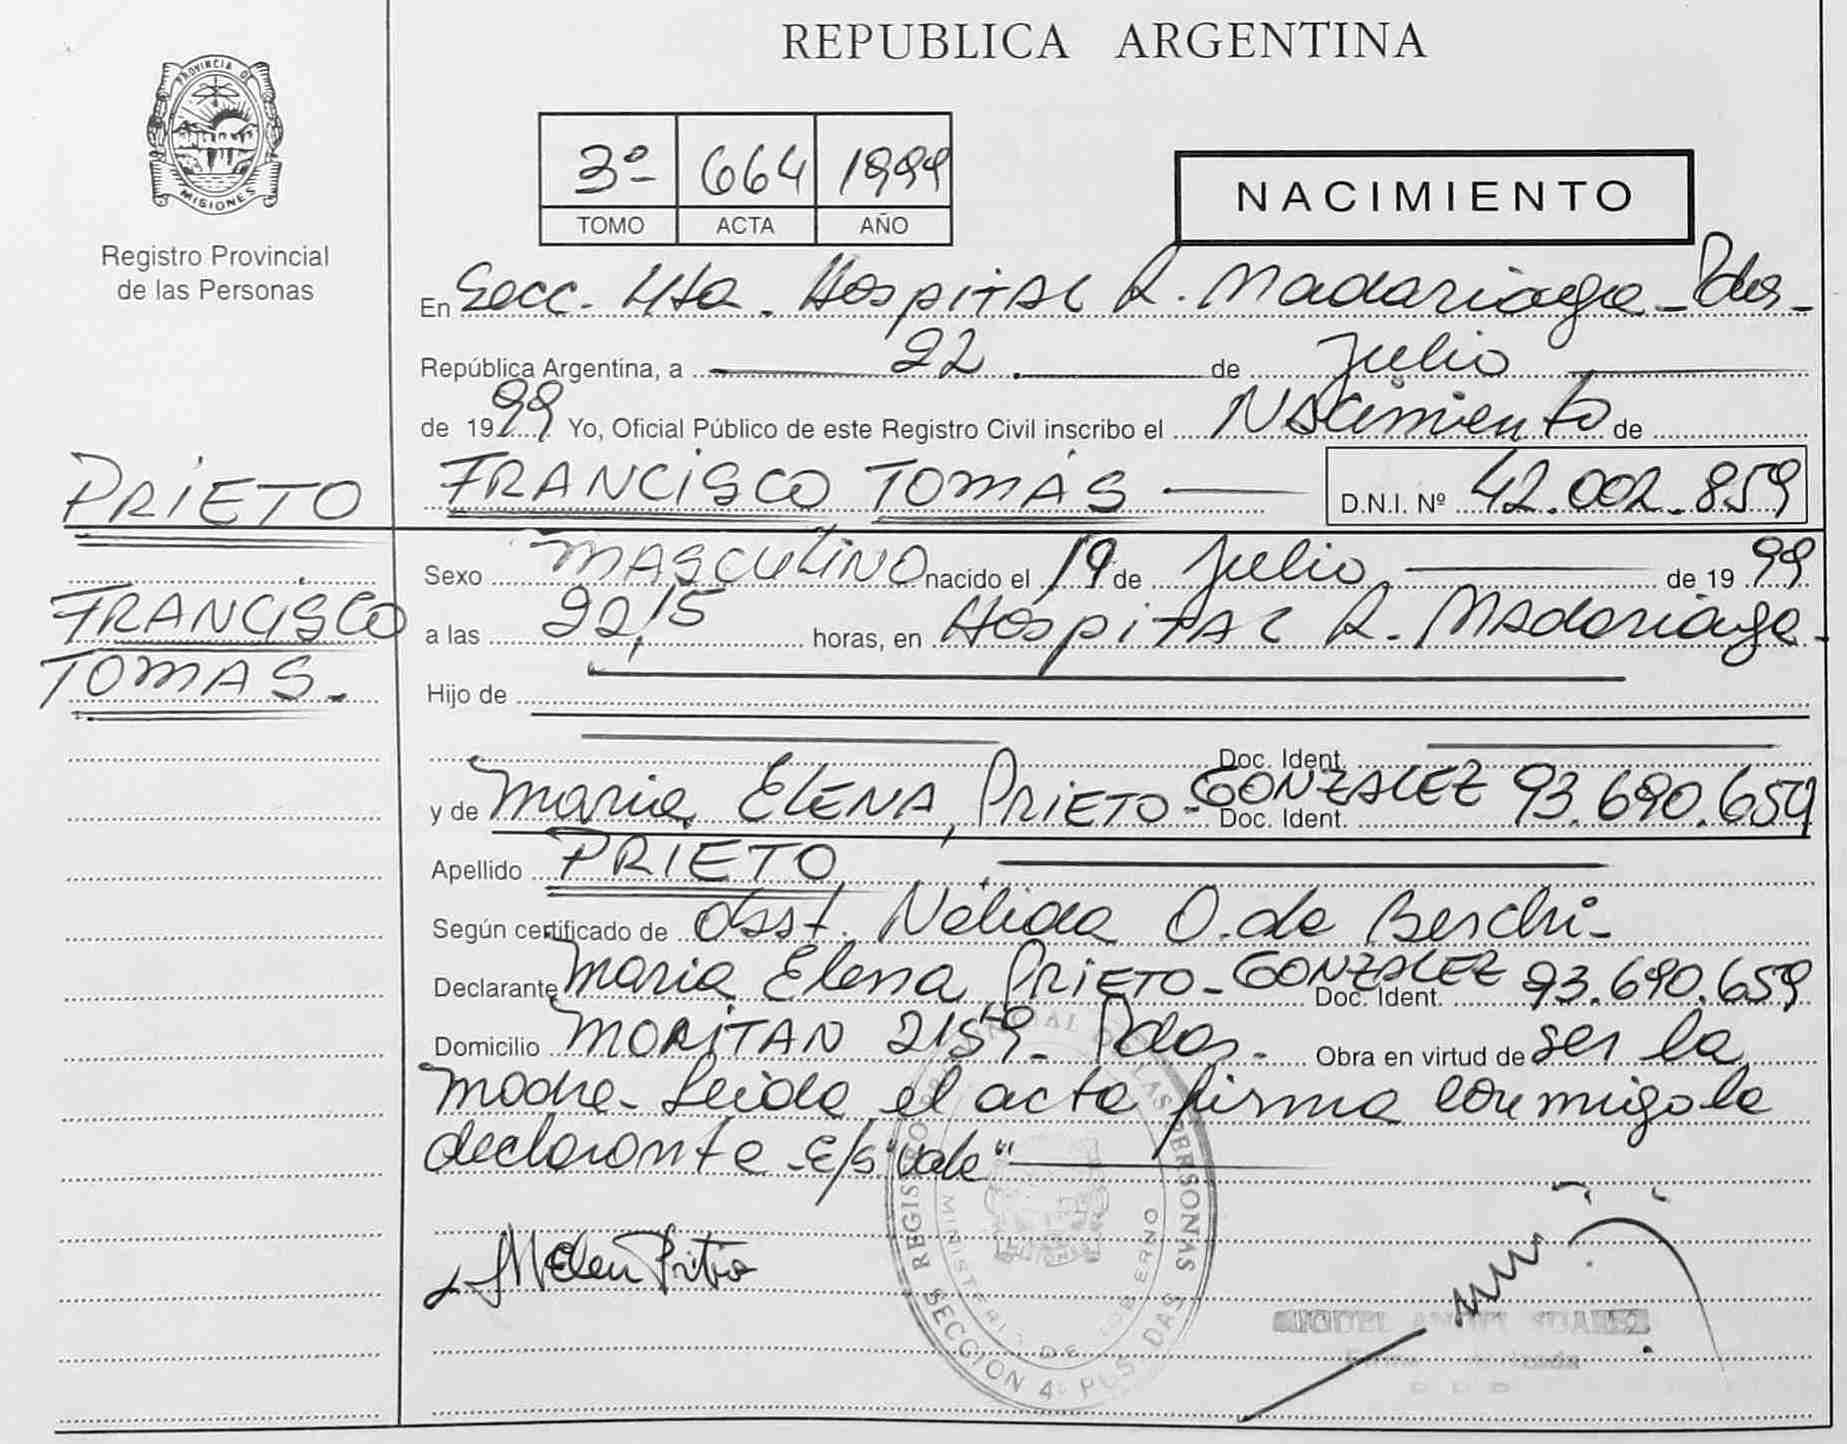 REPUBLICA ARGENTINA
PROVINCIA DE
MISIONES
Registro Provincial
de las Personas
3º 664 1999
TOMO ACTA AÑO
NACIMIENTO
En Secc. 4ta. Hospital R. Madariaga - Pdas -
República Argentina, a 22 de Julio
de 1999 Yo, Oficial Público de este Registro Civil inscribo el Nacimiento de
PRIETO
FRANCISCO TOMÁS D.N.I. Nº 42.002.859
Sexo MASCULINO nacido el 19 de Julio de 1999
FRANCISCO
a las 22,15 horas, en Hospital R. Madariaga -
TOMAS.
Hijo de
Doc. Ident.
y de Maria ELENA, PRIETO - GONZALEZ Doc. Ident. 93.690.659
Apellido PRIETO
Según certificado de Obst. Nélida O. de Berchi -
Declarante Maria Elena PRIETO - GONZALEZ Doc. Ident. 93.690.659
Domicilio MORITAN 2159 - Pdas. Obra en virtud de ser la
madre - Leida el acta firma conmigo la
declarante - E/s "vale"
MElena Prieto
REGISTRO PROVINCIAL DE LAS PERSONAS
MINISTERIO DE GOBIERNO
SECCION 4ª POSADAS
MIGUEL ANGEL SUAREZ